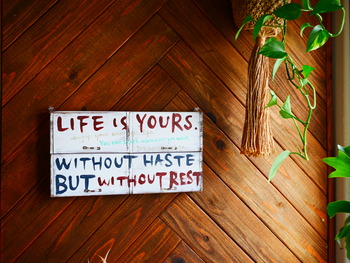 LIFE IS YOURS.
WITHOUT HASTE
BUT WITHOUT REST